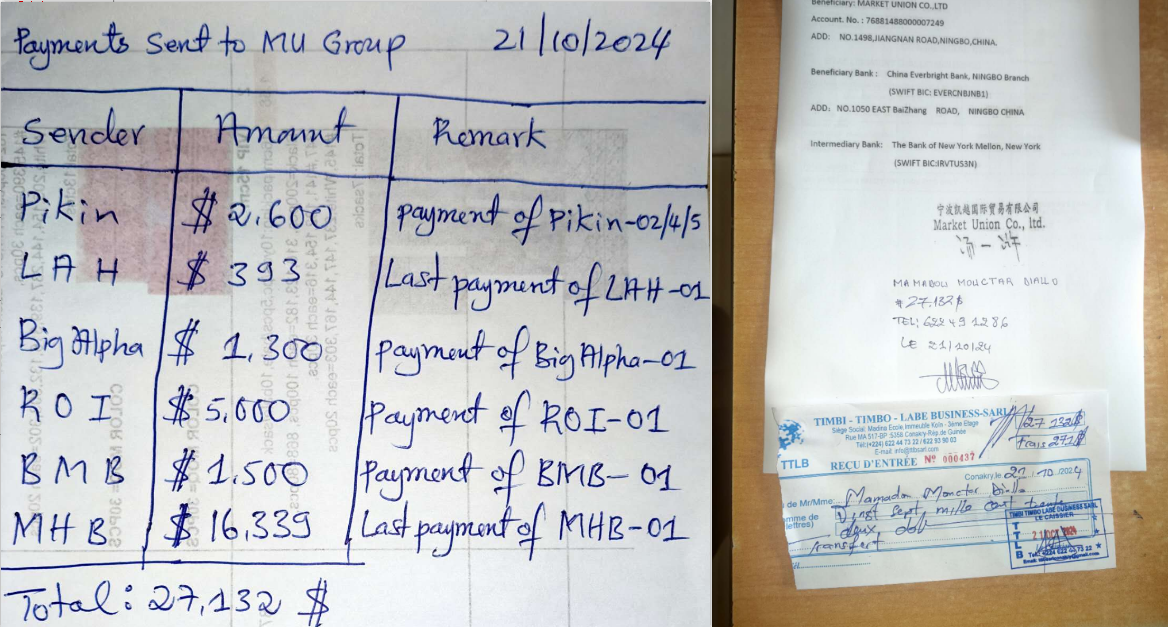 Payments Sent to MU Group 21/10/2024
Sender Amount Remark
Pikin $ 2.600 payment of Pikin-02/4/5
LAH $ 393 Last payment of LAH-01
Big Alpha $ 1,300 payment of Big Alpha-01
ROI $ 5,000 Payment of ROI-01
BMB $ 1.500 Payment of BMB-01
MHB $ 16,339 Last payment of MHB-01
Total: 27,132 $
Beneficiary: MARKET UNION CO.,LTD
Account. No. : 76881488000007249
ADD: NO.1498,JIANGNAN ROAD,NINGBO,CHINA.
Beneficiary Bank : China Everbright Bank, NINGBO Branch
(SWIFT BIC: EVERCNBJNB1)
ADD: NO.1050 EAST BaiZhang ROAD, NINGBO CHINA
Intermediary Bank: The Bank of New York Mellon, New York
(SWIFT BIC:IRVTUS3N)
宁波凯越国际贸易有限公司
Market Union Co., ltd.
MAMADOU MOUCTAR DIALLO
# 27.132$
TEL: 622 49 12 86
LE 21/10/24
TIMBI - TIMBO - LABE BUSINESS-SARL
27 132$
Siège Social: Madina Ecole Immeuble Kein - 3ème Etage
Rue MA 517-BP :5358 Conakry-Rép.de Guinée
Frais 271$
Tel:(+224) 622 44 73 22 / 622 93 90 03
E-mail: info@ttlbsarl.com
TTLB REÇU D'ENTRÉE Nº 000437
Conakry,le 21 /10 /2024
de Mr/Mme: Mamadou Mouctar Diallo
mme de Vingt sept mille cent trente
lettres) deux doll
transfert
TIMBI TIMBO LABÉ BUSINESS SARL
LE CAISSIER
TTLB
21 OCT 2024